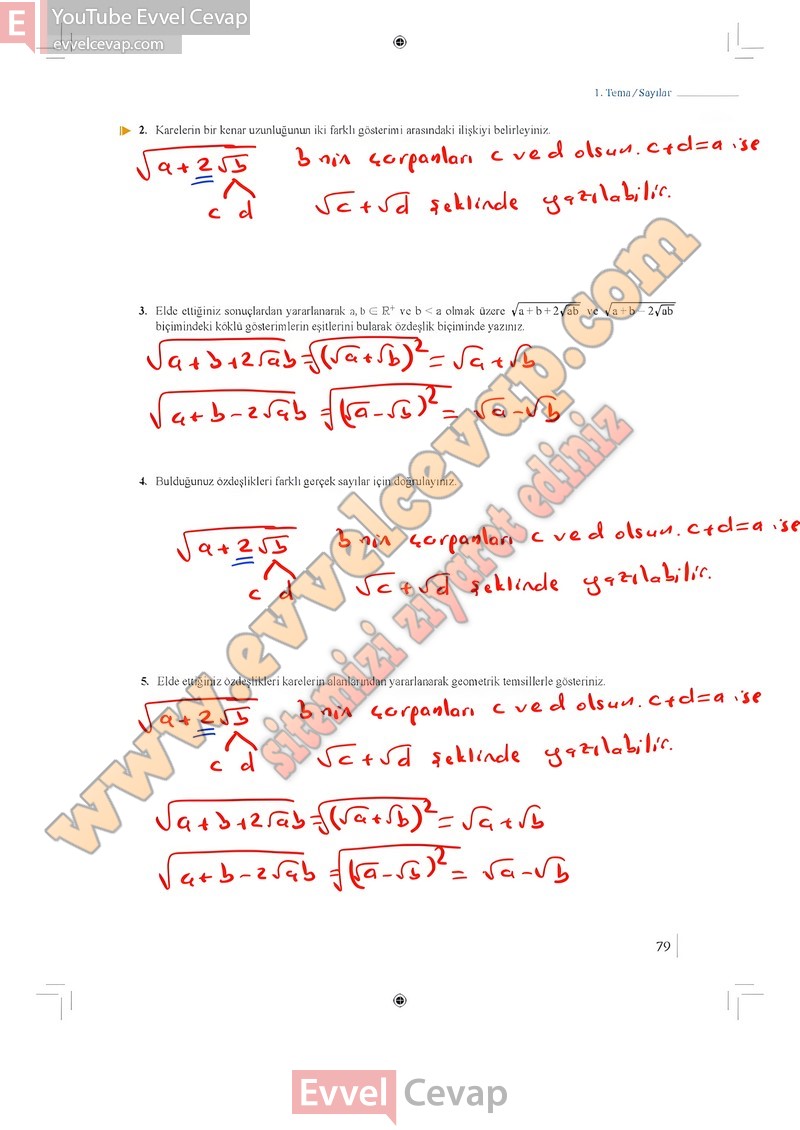 E YouTube Evvel Cevap
evvelcevap.com
1. Tema/Sayılar
2. Karelerin bir kenar uzunluğunun iki farklı gösterimi arasındaki ilişkiyi belirleyiniz.
√(a+2√b) b nin çarpanları c ve d olsun. c+d=a ise
c d √c+√d şeklinde yazılabilir.
3. Elde ettiğiniz sonuçlardan yararlanarak a, b ⊂ ℝ⁺ ve b < a olmak üzere √(a+b+2√ab) ve √(a+b−2√ab)
biçimindeki köklü gösterimlerin eşitlerini bularak özdeşlik biçiminde yazınız.
√(a+b+2√ab) = √((√a+√b)²) = √a+√b
√(a+b-2√ab) = √((√a-√b)²) = √a-√b
4. Bulduğunuz özdeşlikleri farklı gerçek sayılar için doğrulayınız.
√(a+2√b) b nin çarpanları c ve d olsun. c+d=a ise
c d √c+√d şeklinde yazılabilir.
5. Elde ettiğiniz özdeşlikleri karelerin alanlarından yararlanarak geometrik temsillerle gösteriniz.
√(a+2√b) b nin çarpanları c ve d olsun. c+d=a ise
c d √c+√d şeklinde yazılabilir.
√(a+b+2√ab) = √((√a+√b)²) = √a+√b
√(a+b-2√ab) = √((√a-√b)²) = √a-√b
www.evvelcevap.com
sitemizi ziyaret ediniz
79
Evvel Cevap